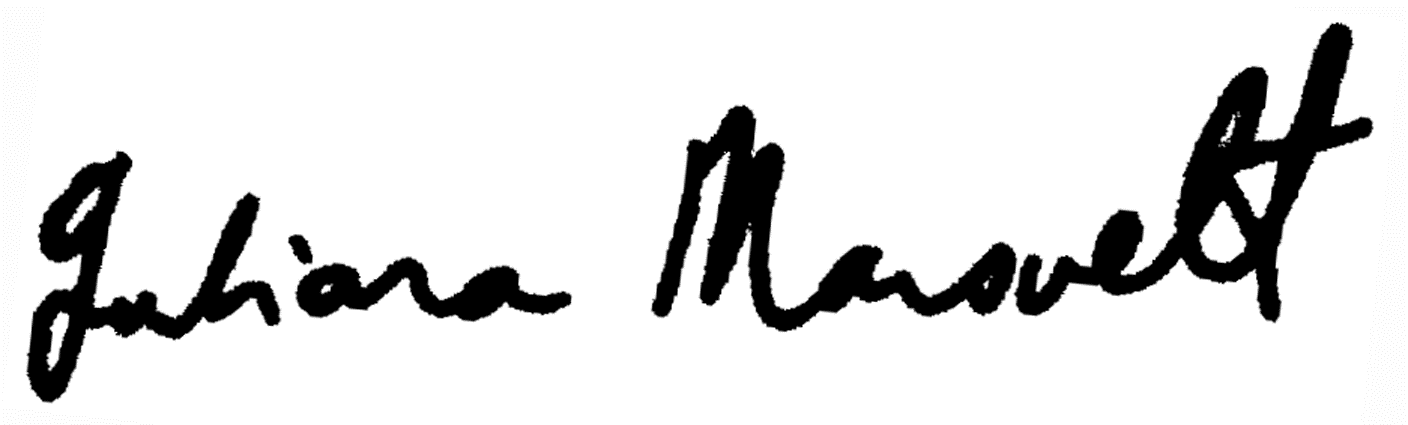 Juliana Marsvelt